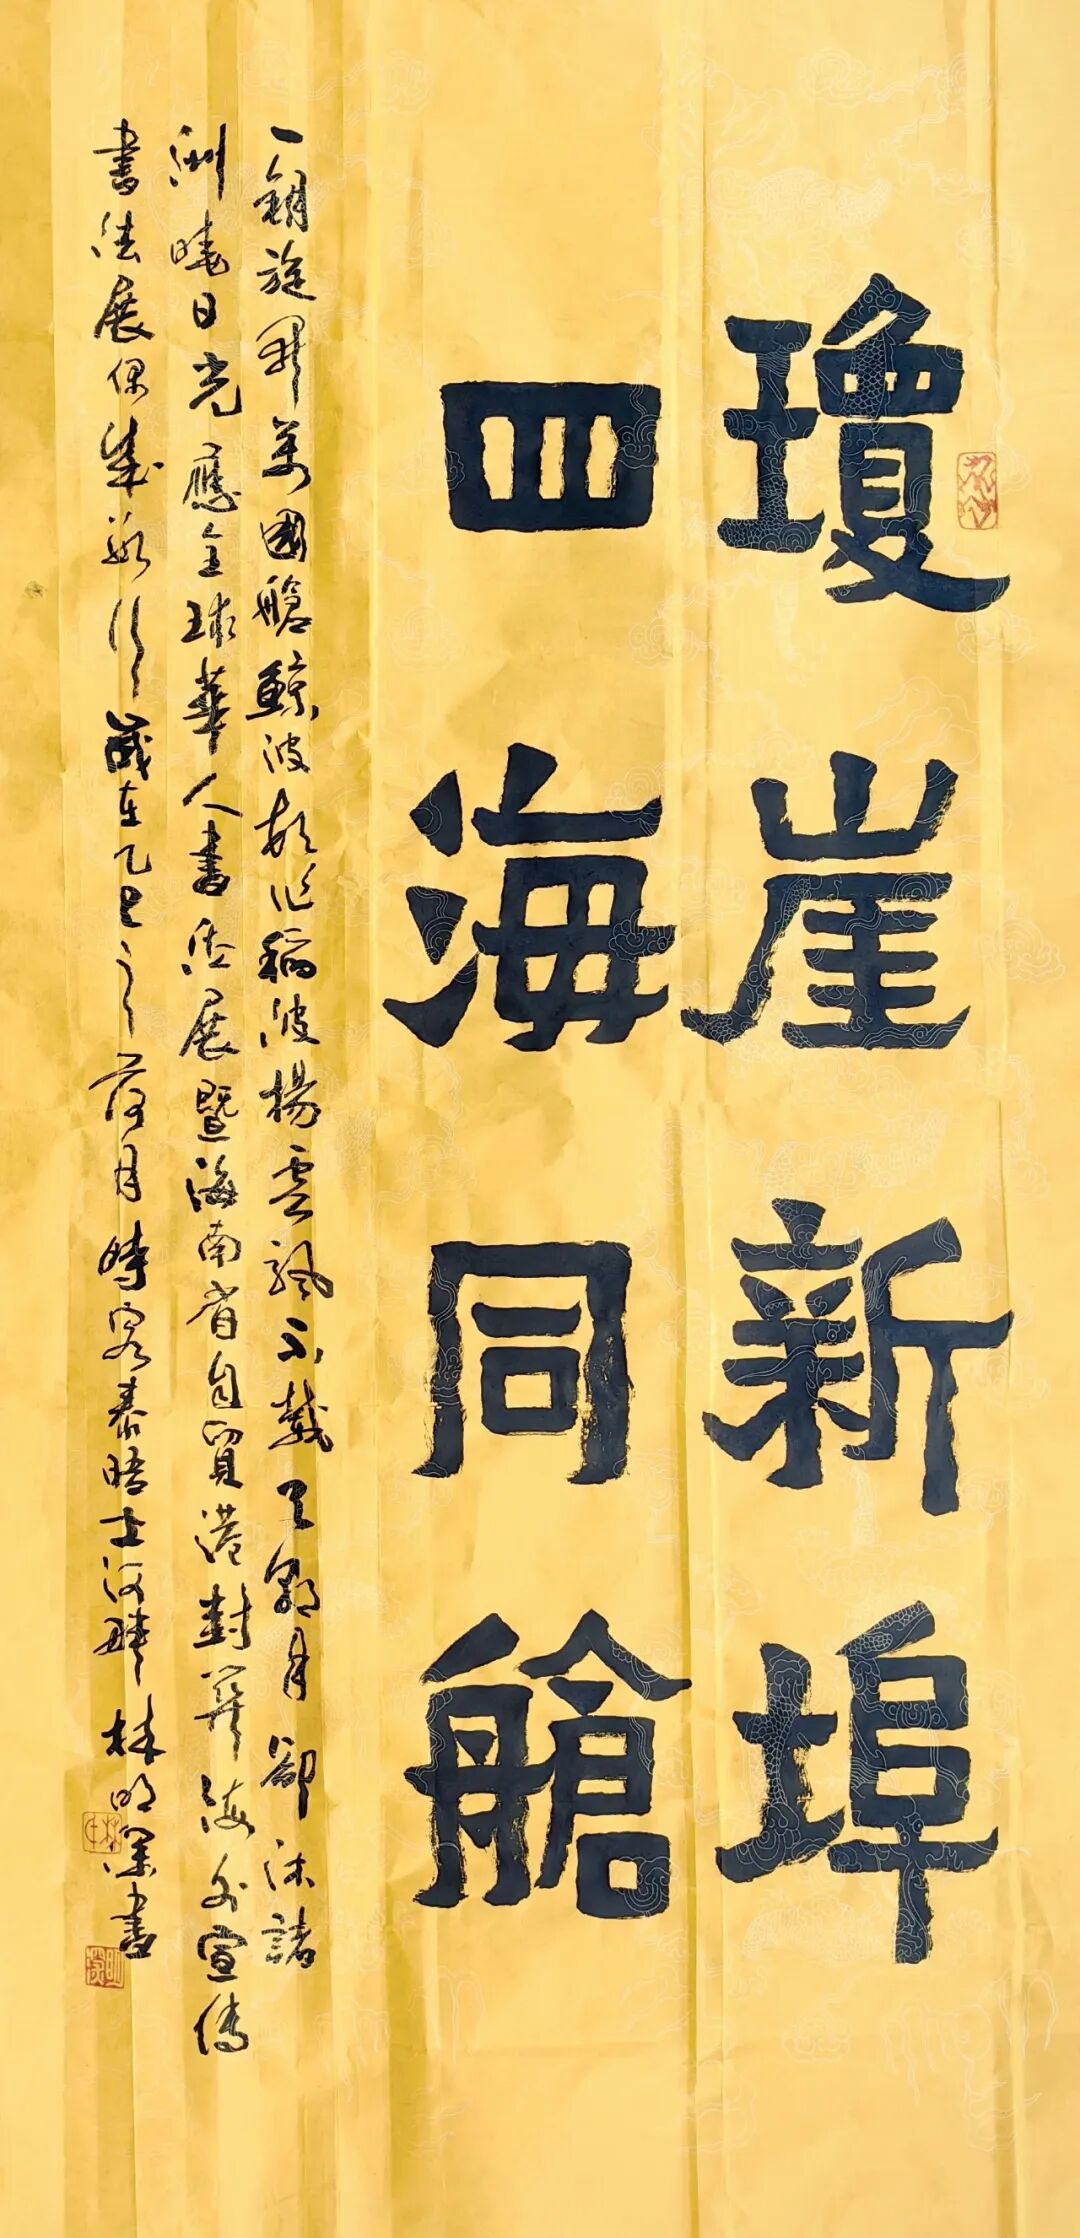 瓊崖新埠
四海同艙
一鑰旋開萬國艙鯨波都化稻波揚雲颿不載天邊月卻沐諸
洲曉日光應全球華人書法展暨海南省自貿港封關海外宣傳
書法展保成歲在乙巳之荷月時客泰晤士河畔林明深書